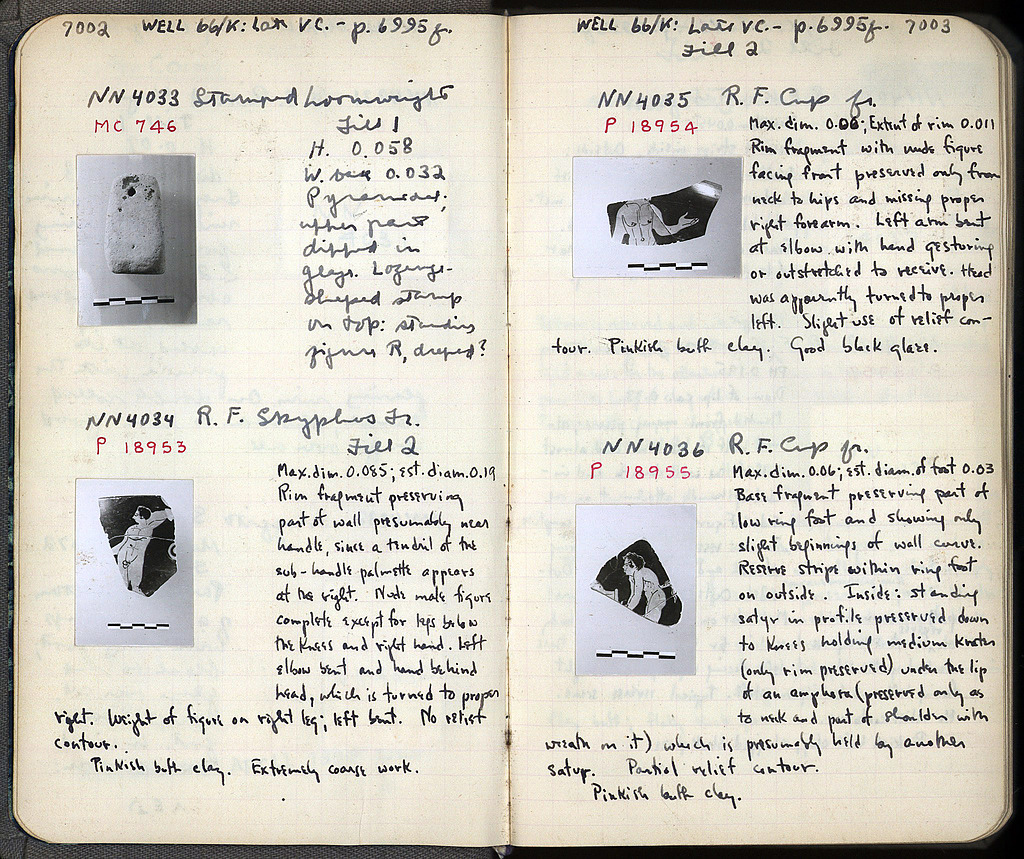 7002 WELL 66/K: Late VC. - p. 6995f.
NN 4033 Stamped Loomweight
MC 746
Fill 1
H. 0.058
W. base 0.032
Pyramidal;
upper part
dipped in
glaze. Lozenge-
shaped stamp
on top: standing
figure R, draped?
NN 4034 R. F. Skyphos Fr.
P 18953
Fill 2
Max. dim. 0.085; est. diam. 0.19
Rim fragment preserving
part of wall presumably near
handle, since a tendril of the
sub-handle palmette appears
at the right. Nude male figure
complete except for legs below
the knees and right hand. Left
elbow bent and hand behind
head, which is turned to proper
right. Weight of figure on right leg; left bent. No relief
contour.
Pinkish buff clay. Extremely coarse work.
WELL 66/K: Late VC. - p. 6995f. 7003
Fill 2
NN 4035 R. F. Cup fr.
P 18954
Max. dim. 0.06; Extent of rim 0.011
Rim fragment with nude figure
facing front preserved only from
neck to hips and missing proper
right forearm. Left arm bent
at elbow with hand gesturing
or outstretched to receive. Head
was apparently turned to proper
left. Slight use of relief con-
tour. Pinkish buff clay. Good black glaze.
NN 4036 R. F. Cup fr.
P 18955
Max. dim. 0.06; est. diam. of foot 0.03
Base fragment preserving part of
low ring foot and showing only
slight beginnings of wall curve.
Reserve stripe within ring foot
on outside. Inside: standing
satyr in profile preserved down
to knees holding medium krater
(only rim preserved) under the lip
of an amphora (preserved only as
to neck and part of shoulder with
wreath on it) which is presumably held by another
satyr. Partial relief contour.
Pinkish buff clay.